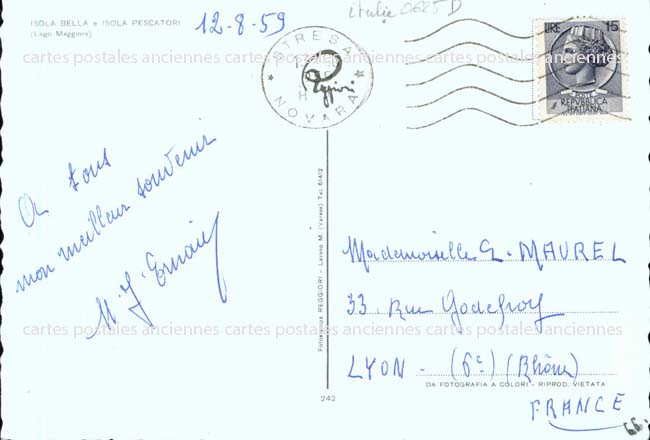 ISOLA BELLA e ISOLA PESCATORI
(Lago Maggiore)
12-8-59
italie 0625 D
STRESA
NOVARA
LIRE 15
POSTE
REPVBBLICA
ITALIANA
A tous
mon meilleur souvenir
M. J.
Fotocelere REGGIORI - Laveno M. (Varese) Tel. 61412
Mademoiselle G. MAUREL
33, Rue Godefroy
LYON - (6e) (Rhône)
DA FOTOGRAFIA A COLORI - RIPROD. VIETATA
FRANCE
242
66
cartes postales anciennes cartes postales anciennes cartes postales anciennes
cartes postales anciennes cartes postales anciennes cartes postales anciennes